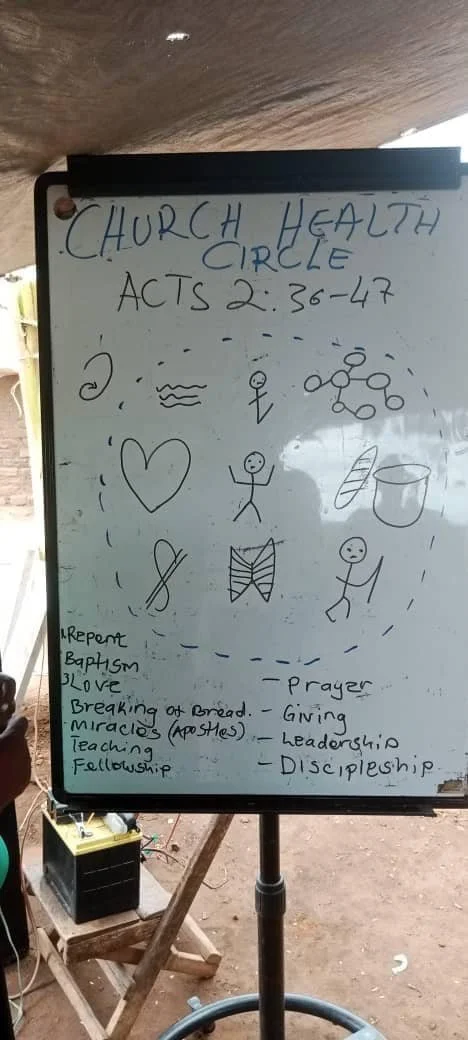 CHURCH HEALTH
CIRCLE
ACTS 2:36-47
1.Repent
Baptism
3Love
Breaking of Bread.
Miracles (Apostles)
Teaching
Fellowship
- Prayer
- Giving
- Leadership
- Discipleship